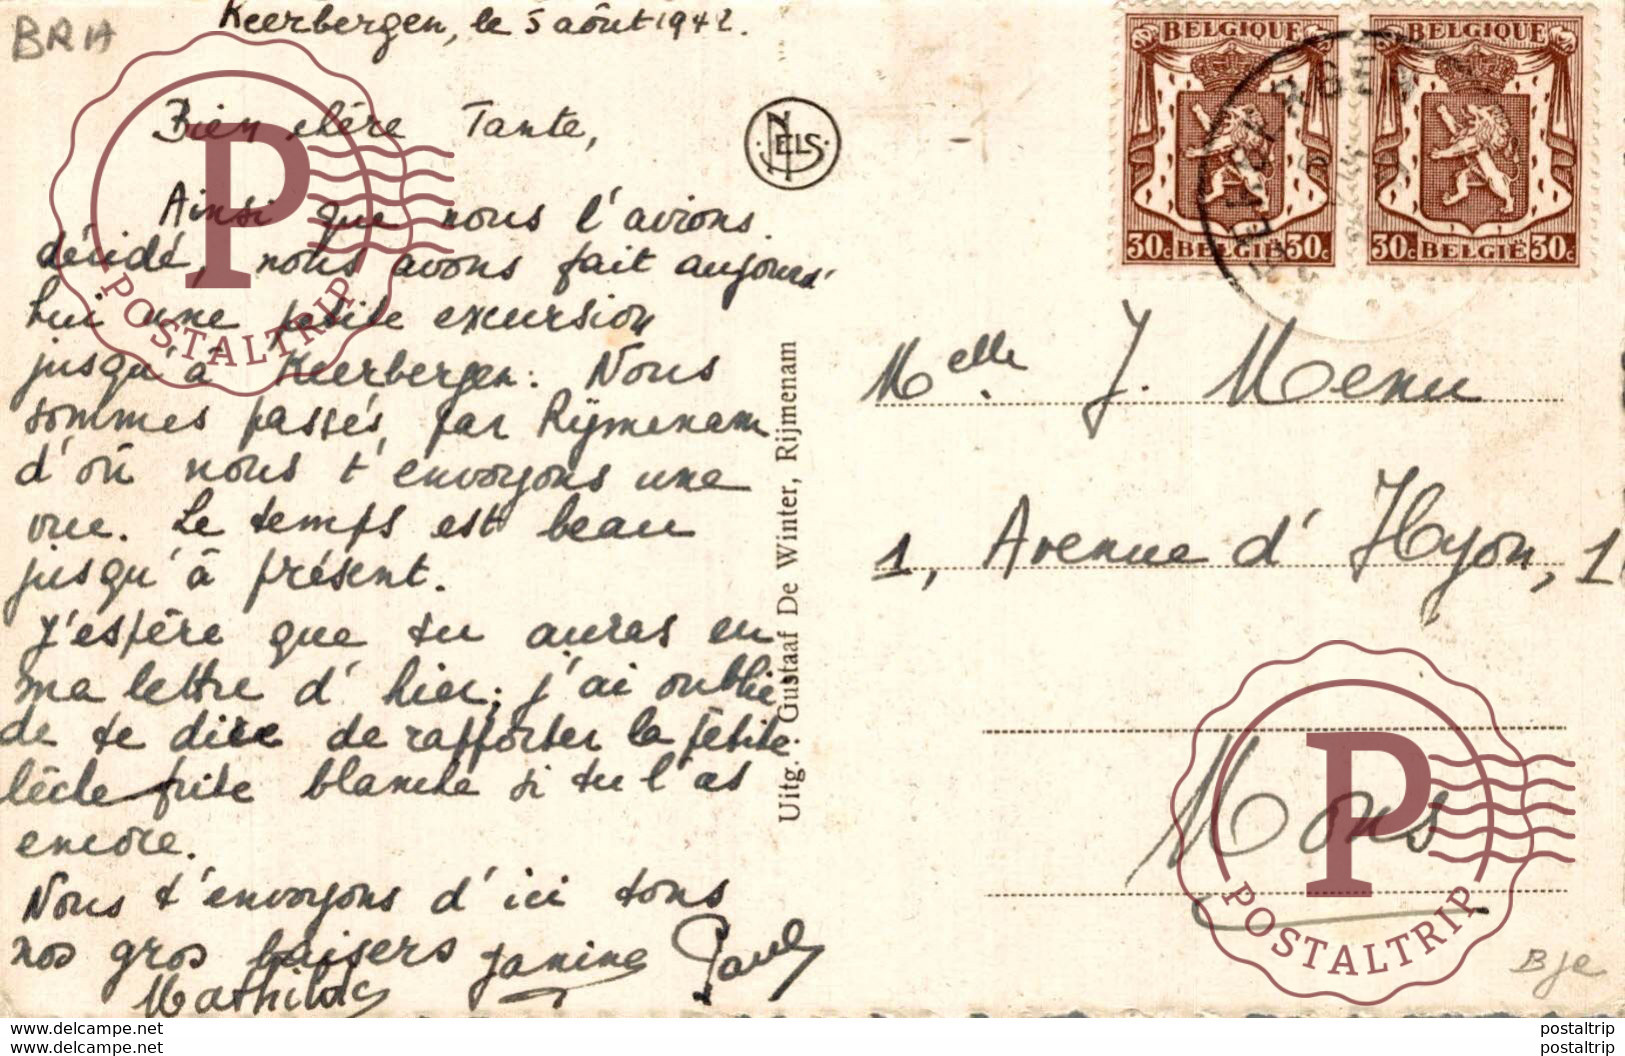 BRA
Keerbergen, le 5 août 1942.
Bien chère Tante,
Ainsi que nous l'avions
décidé, nous avons fait aujourd'
hui une petite excursion
jusqu'à Keerbergen. Nous
sommes passés, par Rijmenam
d'où nous t'envoyons une
vue. Le temps est beau
jusqu'à présent.
J'espère que tu auras eu
ma lettre d'hier; j'ai oublié
de te dire de rapporter la petite
lèche-frite blanche si tu l'as
encore.
Nous t'envoyons d'ici tous
nos gros baisers Janine Paul
Mathilde
NELS
Uitg. Gustaaf De Winter, Rijmenam
BELGIQUE
30c BELGIË 30c
BELGIQUE
30c BELGIË 30c
KEERBERGEN
Melle. J. Menu
1, Avenue d'Hyon, 1
Mons
Bje
P
POSTALTRIP
P
POSTALTRIP
www.delcampe.net
www.delcampe.net
postaltrip
postaltrip